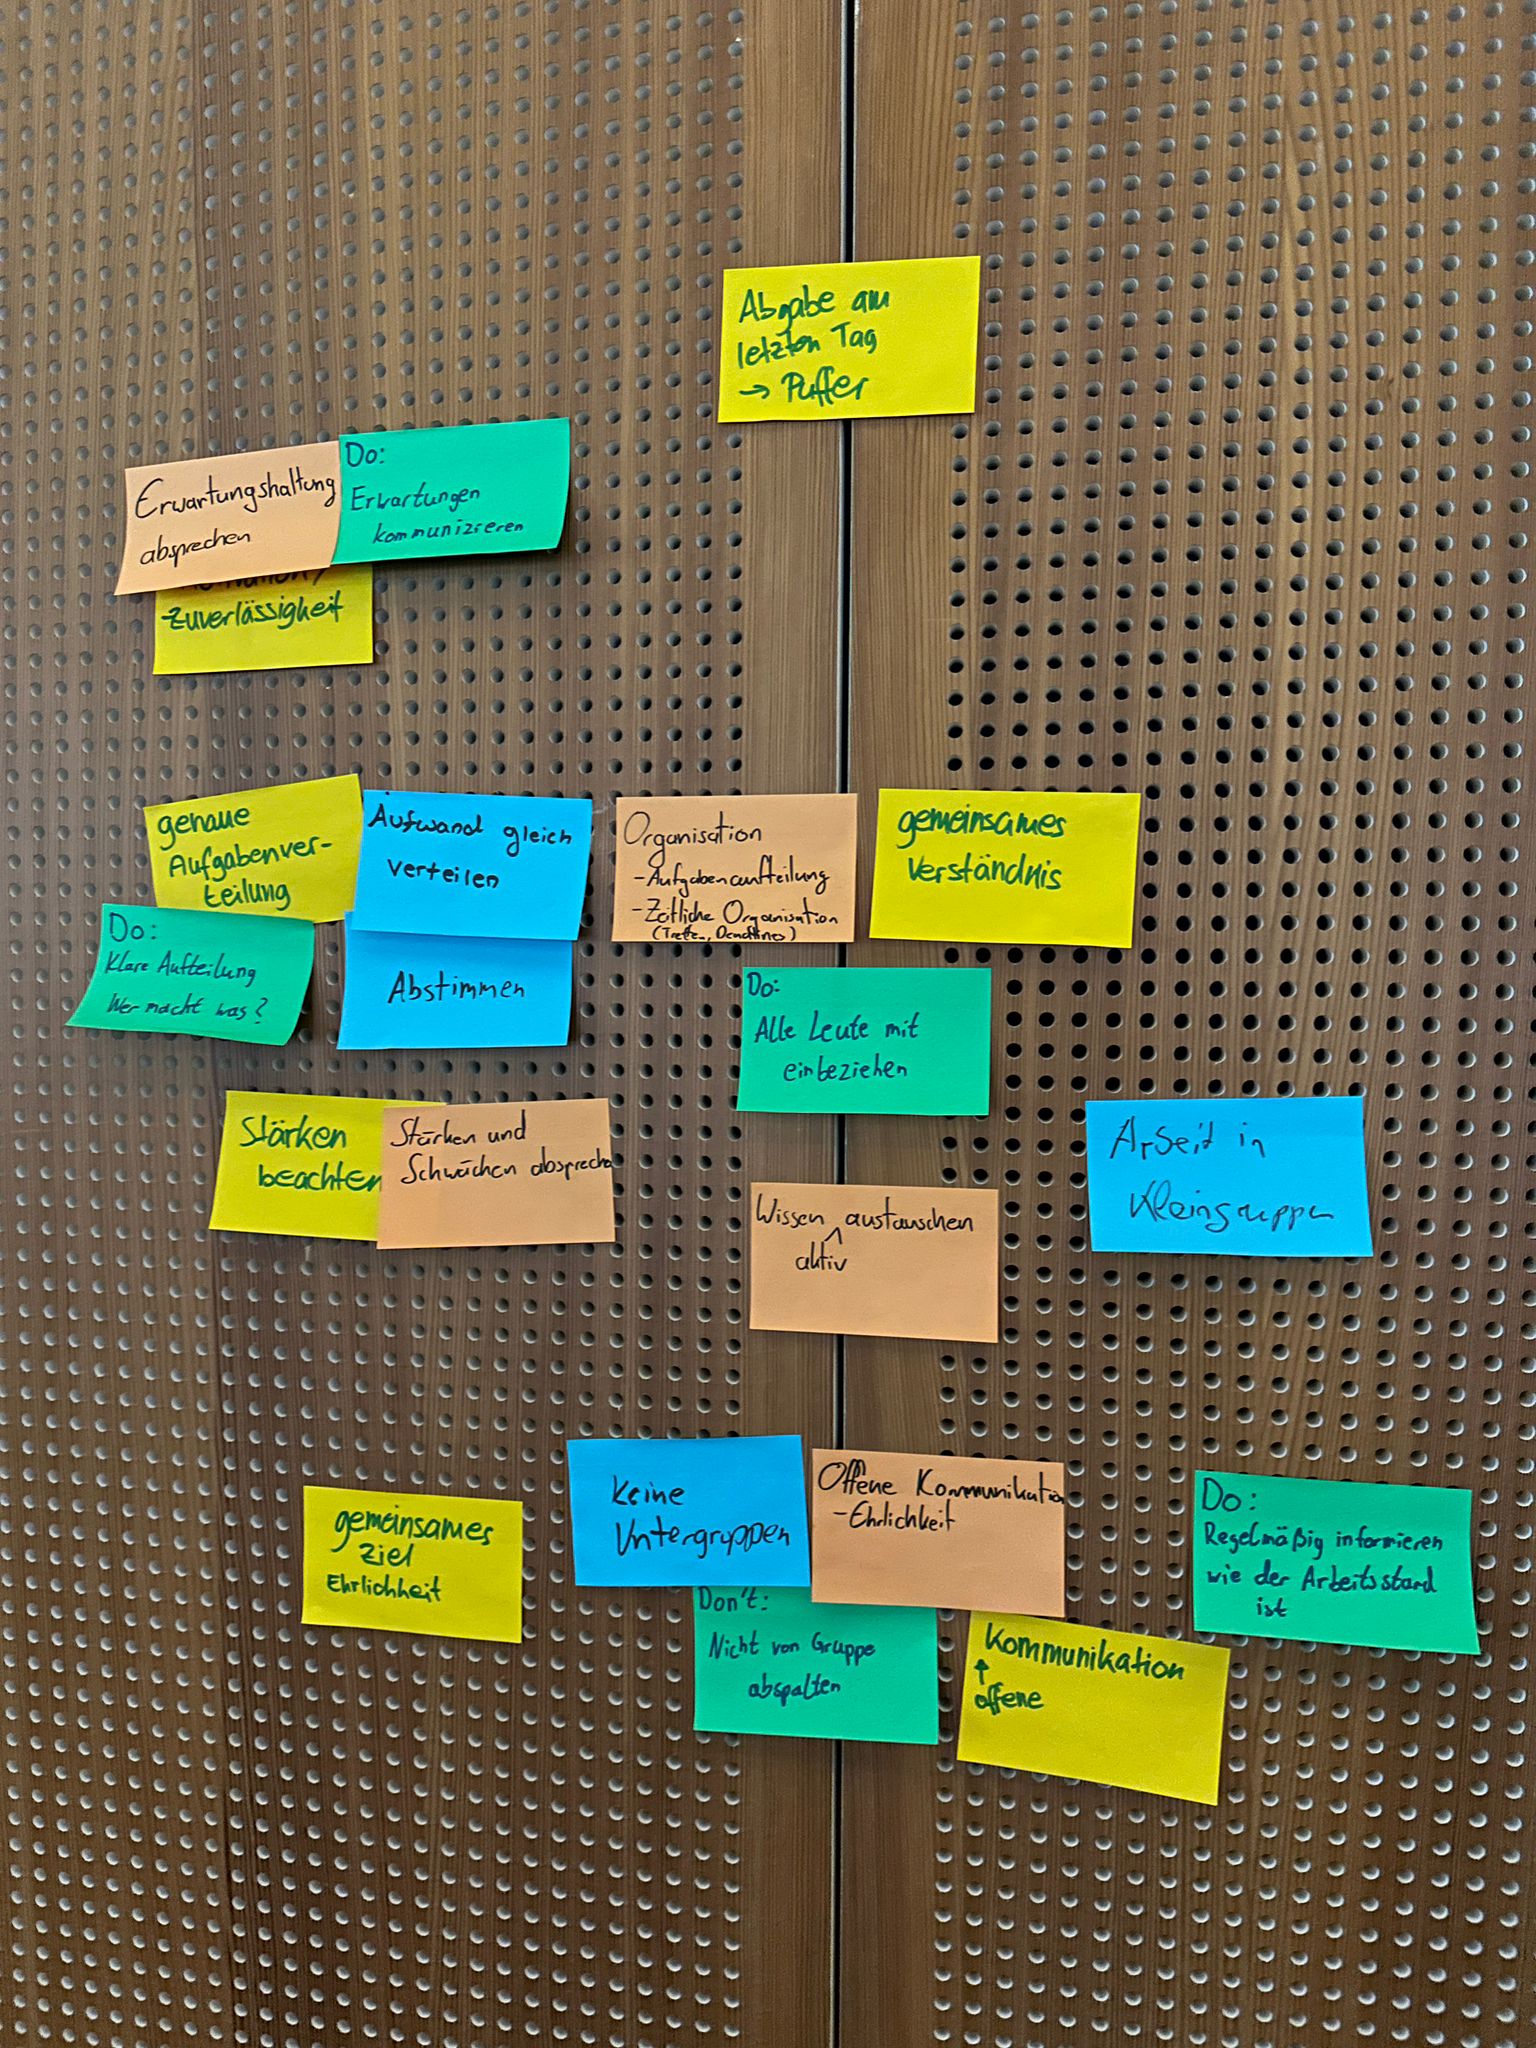 Abgabe am
letzten Tag
→ Puffer
Erwartungshaltung
absprechen
Do:
Erwartungen
kommunizieren
Zuverlässigkeit
genaue
Aufgabenver-
teilung
Aufwand gleich
verteilen
Organisation
- Aufgabenaufteilung
- Zeitliche Organisation
(Treffen, Deadlines)
gemeinsames
Verständnis
Do:
Klare Aufteilung
Wer macht was?
Abstimmen
Do:
Alle Leute mit
einbeziehen
Stärken
beachten
Stärken und
Schwächen absprechen
Arbeit in
Kleingruppen
Wissen austauschen
aktiv
gemeinsames
Ziel
Ehrlichkeit
Keine
Untergruppen
Offene Kommunikation
- Ehrlichkeit
Do:
Regelmäßig informieren
wie der Arbeitsstand
ist
Don't:
Nicht von Gruppe
abspalten
Kommunikation
↑
offene